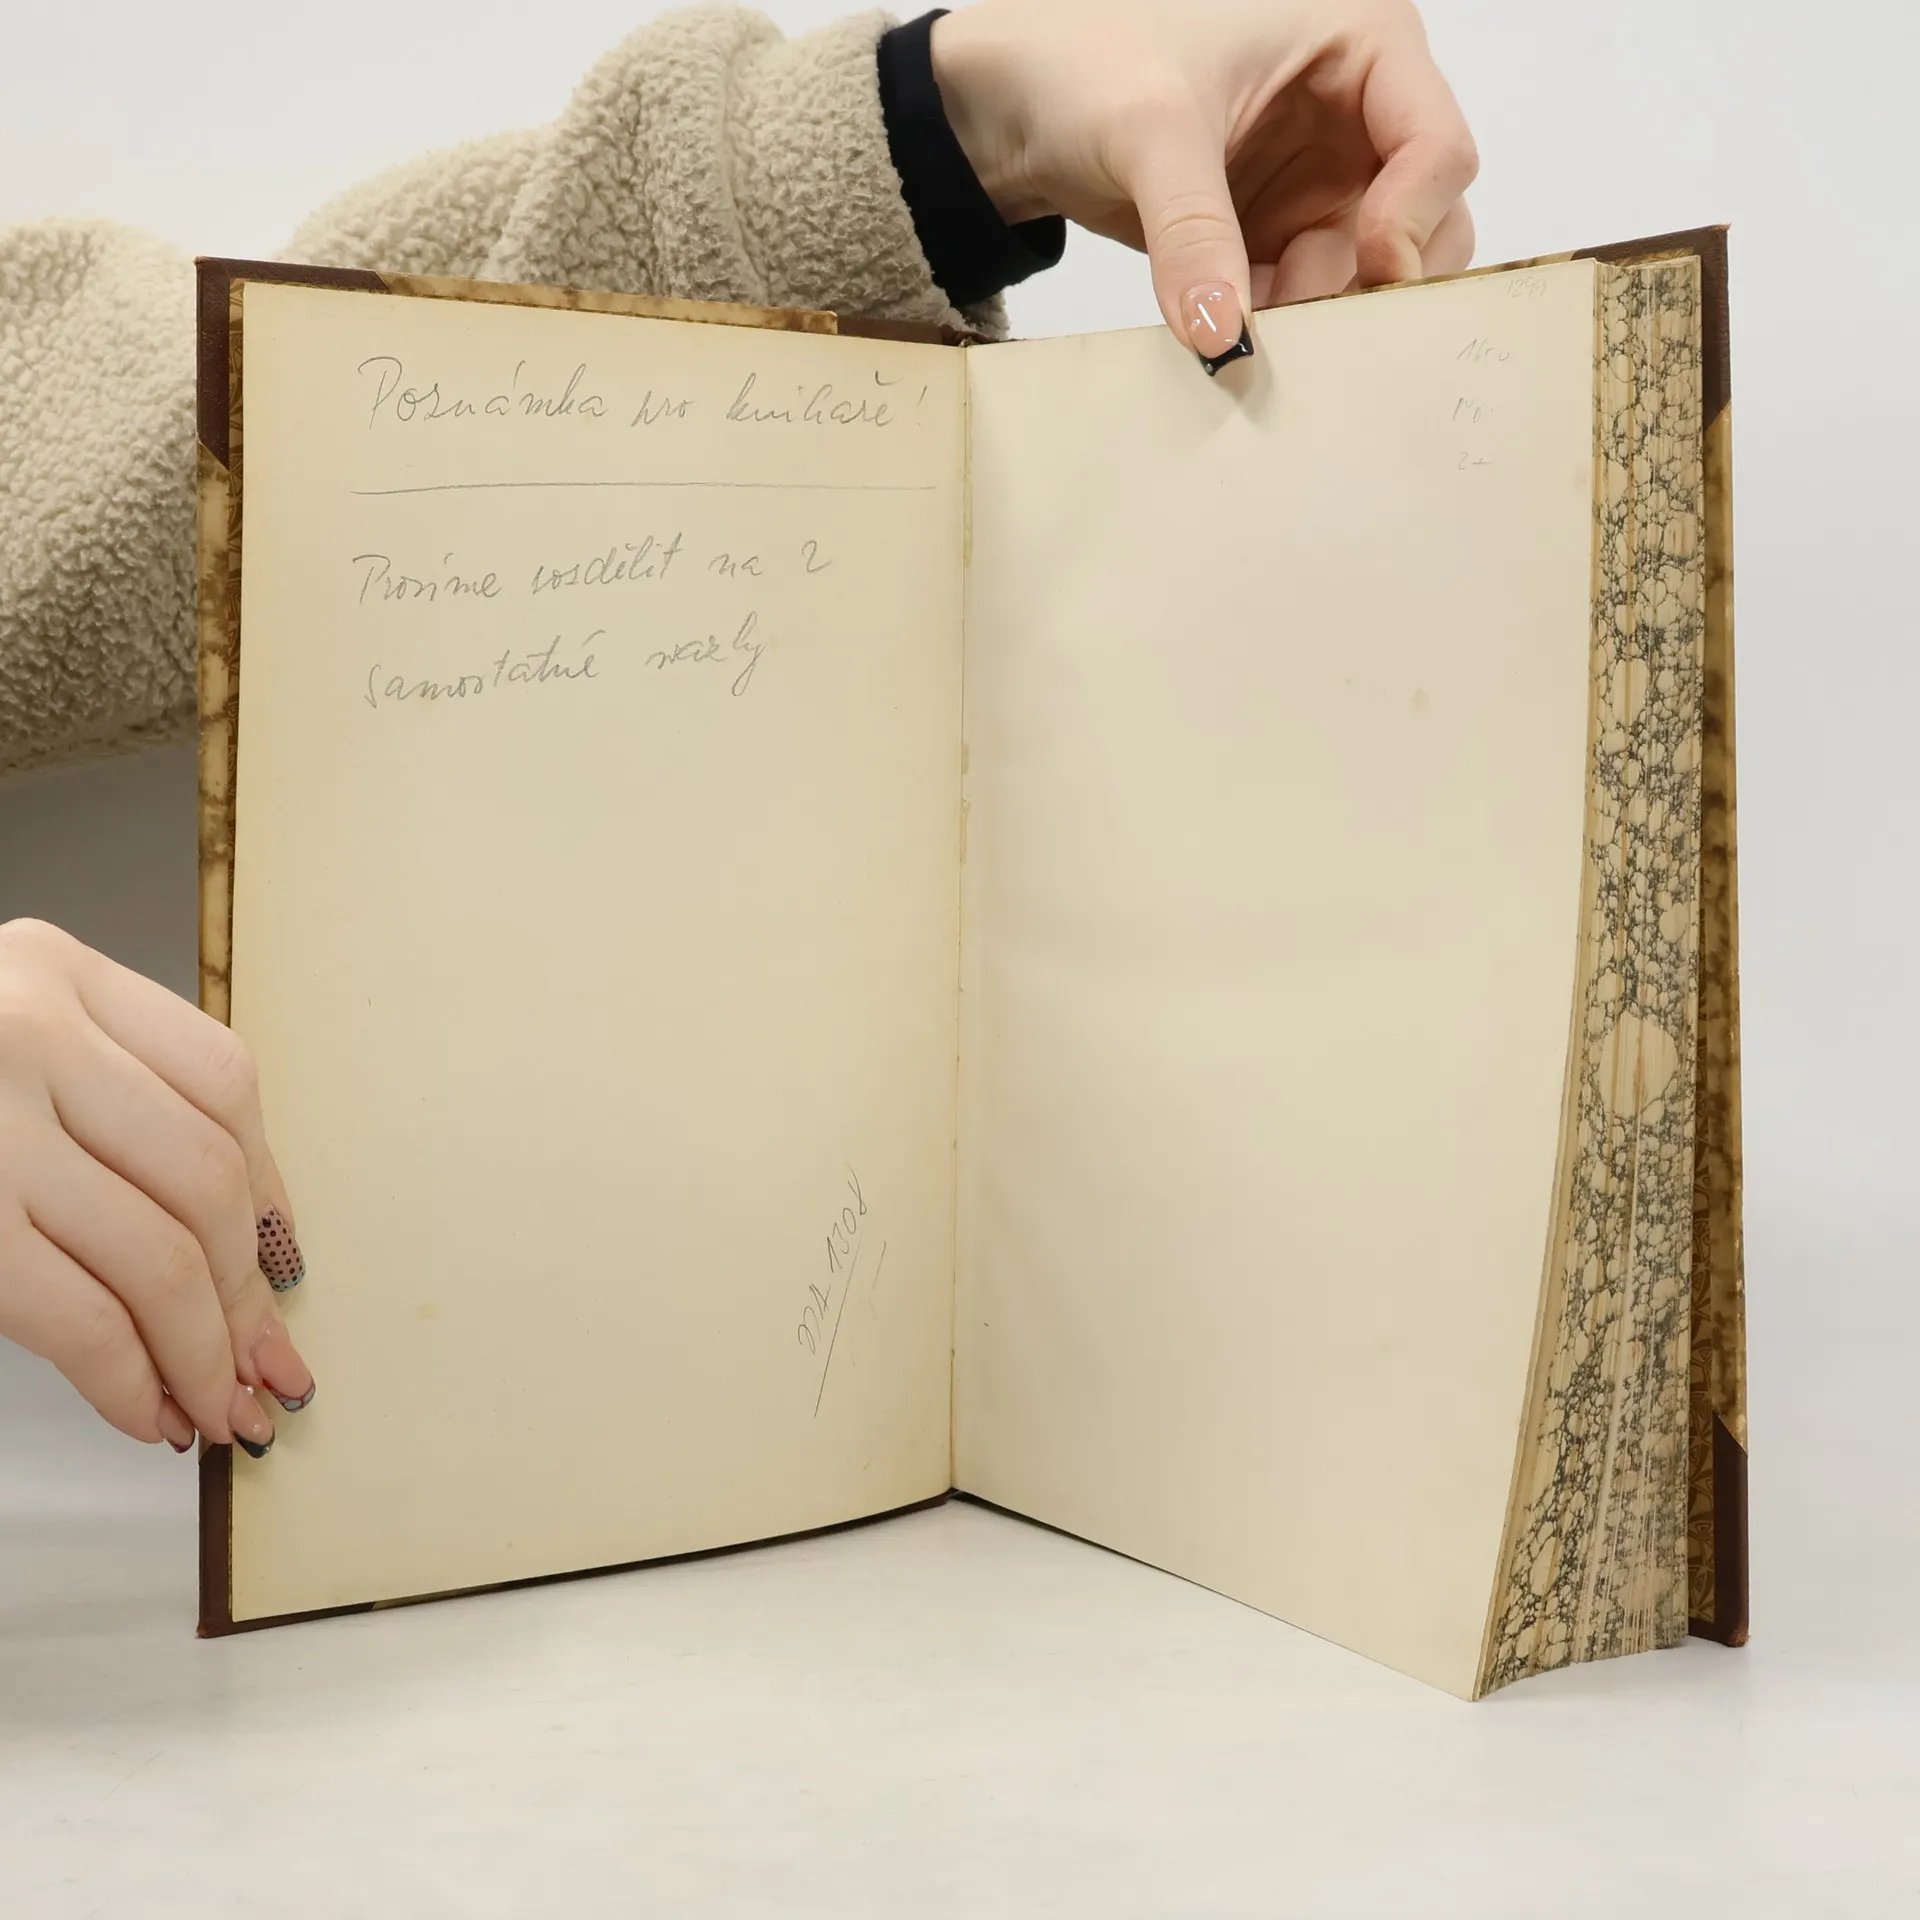 Poznámka pro knihaře!
Prosíme rozdělit na 2
samostatné svazky
1299
1650
2+